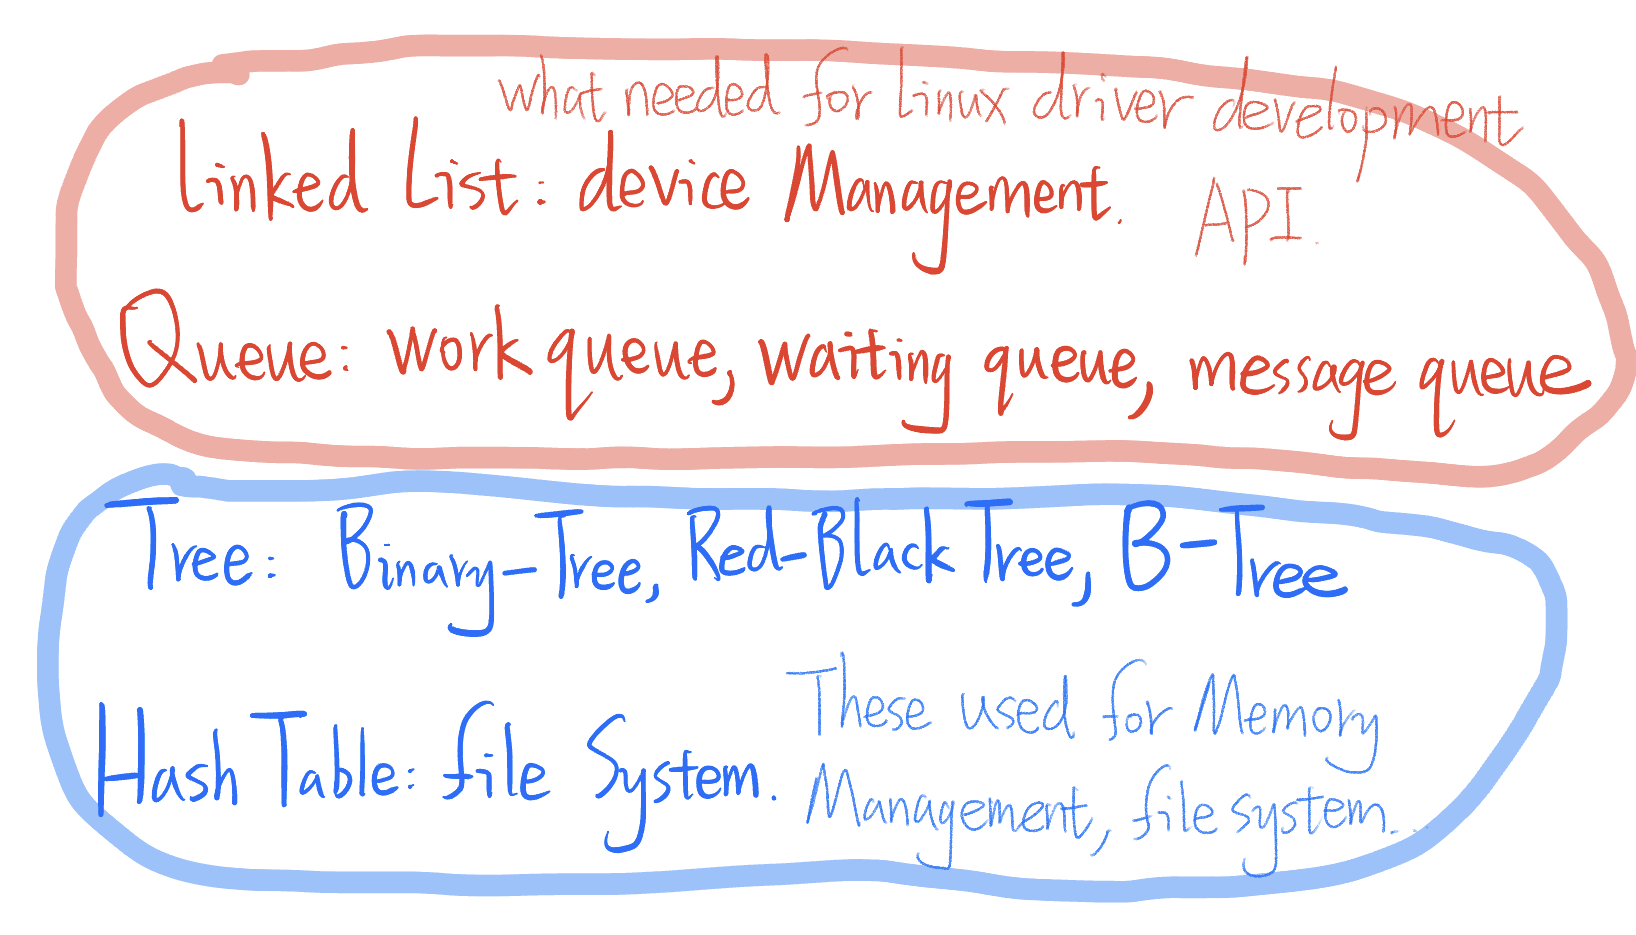 what needed for Linux driver development
Linked List: device Management.
API.
Queue: work queue, waiting queue, message queue
Tree: Binary-Tree, Red-Black Tree, B-Tree
These used for Memory
Hash Table: file System.
Management, file system...